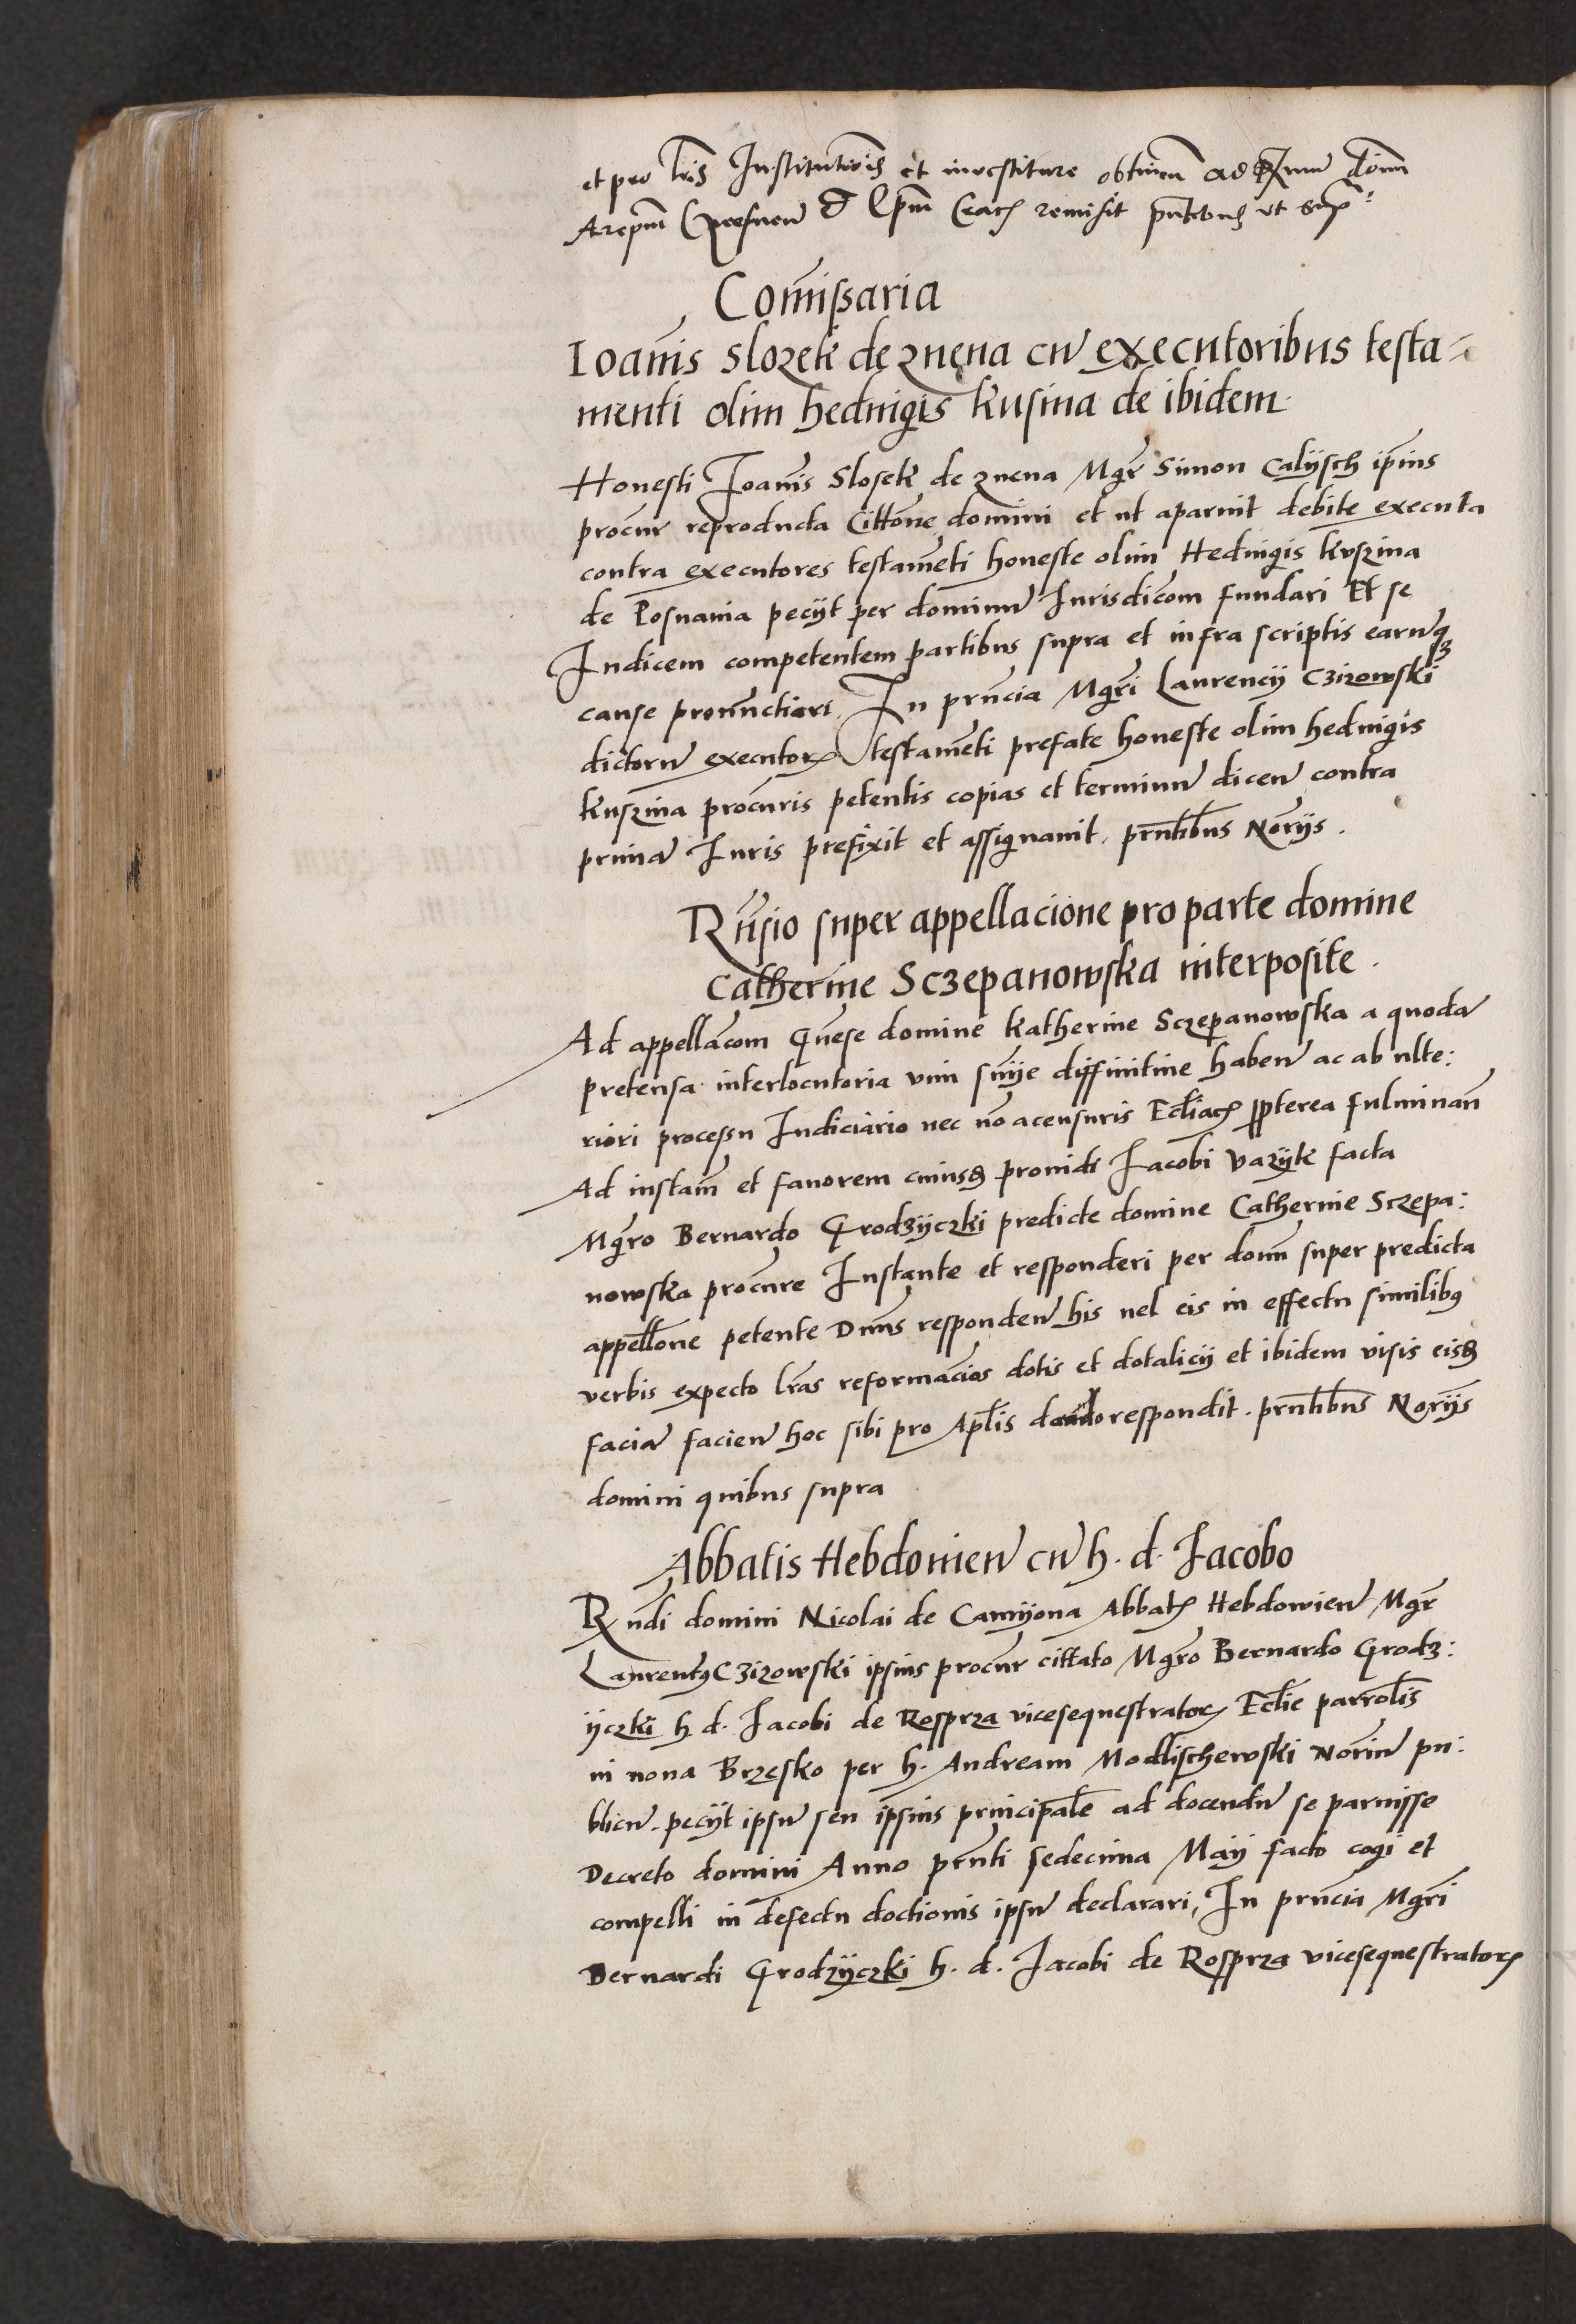 et pro lris Institutiōis et investiture obtinen ad Rmum dōnm
Arepm Gnesnen & Epm Crac remisit pntibus ut supra
Comissaria
Ioannis Slozek de znena cu executoribus testa=
menti olim hedvigis kusina de ibidem
Honesti Joannis Slosek de znena Mgr Simon Calijsch ipsius
procur reproducta Cittone domini et ut aparuit debite executa
contra executores testameti honeste olim Hedvigis kuszina
de Posnania pecijt per dominu Jurisdicom fundari Et se
Judicem competentem partibus supra et infra scriptis earuq3
cause pronunctiari, In prncia Mgri Laurencij Czizowski
dictoru executor testameti prefate honeste olim hedvigis
kuszina procuris petentis copias et terminu dicen contra
prima Juris prefixit et assignavit, prntibus Norijs.
Rnsio super appellacione pro parte domine
Catherine Sczepanowska interposite.
Ad appellacom Gnese domine katherine Sczepanowska a quoda
pretensa interlocutoria vim snije diffinitive haben ac ab ulte:
riori processu Judiciario nec no a censuris Ecliac ppterea fulminan
Ad instam et favorem cuiusd providi Jacobi Vazijk facta
Mgro Bernardo Grodzijczki predicte domine Catherine Sczepa:
nowska procure Instante et responderi per domn super predicta
appellone petente Dnus responden his vel eis in effectu similibus
verbis expecto lras reformacios dotis et dotalicij et ibidem visis eisd
facia facien hoc sibi pro Aplis dando respondit. prntibus Norijs
domini quibus supra
Abbatis Hebdovien cu h. d. Jacobo
Rndi domini Nicolai de Camijona Abbatis Hebdowien Mgr
Laurentus Czizowski ipsius procur cittato Mgro Bernardo Grodz:
ijczki h d. Jacobi de Rosprza vicesequestrator Eclie parrolis
in nova Brzesko per h. Andream Modlischewski Noriu pu:
blicu. pecijt ipsu seu ipsius principale ad docendu se paruisse
Decreto domini Anno prnti sedecima Maij facto cogi et
compelli in defectu doctionis ipsu declarari, In prncia Mgri
Bernardi Grodzijczki h. d. Jacobi de Rosprza vicesequestrator